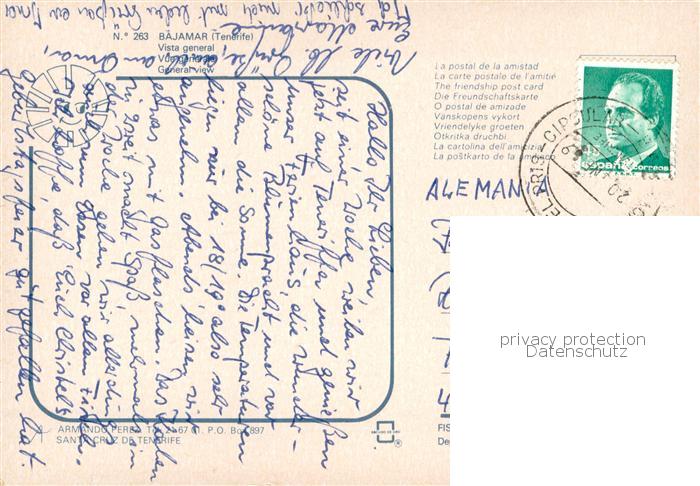 N.° 263 BAJAMAR (Tenerife)
Vista general
Vue générale
General view
La postal de la amistad
La carte postale de l'amitié
The friendship post card
Die Freundschaftskarte
O postal de amizade
Vänskapens vykort
Vriendelyke groeten
Otkritka druchbi
La cartolina dell'amicizia
La poštkarto de la amikeco
españa correos
ALEMANIA
Hallo Ihr Lieben,
seit einer Woche weilen wir
jetzt auf Teneriffa und genießen
unser Ferienhaus, die wunder-
schöne Blumenpracht und vor
allem die Sonne. Die Temperaturen
liegen nur bei 18/19° also sehr
angenehm. Abends heizen wir
etwas mit Gasflaschen. Das Leben
zu zweit macht Spaß
der Woche gehen wir allerdings
auch zum Essen vor allem
Ich hoffe, daß Euch Christels
Geburtstagsfeier gut gefallen hat.
Viele lb. Grüße, auch
an Oma,
Eure Marianne
Ich schließe mich mit lieben Grüßen an
ARMANDO PEREZ Tel. 21 67 01. P.O. Box 897
SANTA CRUZ DE TENERIFE
privacy protection
Datenschutz